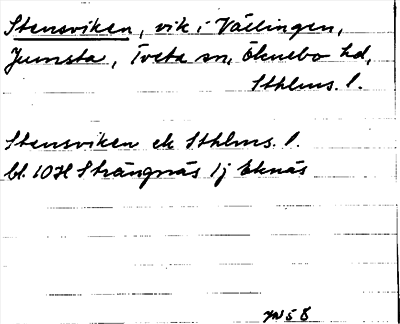 Stensviken, vik i Vällingen,
Jumsta, Tveta sn, Öknebo hd,
Sthlms. l.
Stensviken ek Sthlms. l.
bl. 10H Strängnäs 1j Eknäs